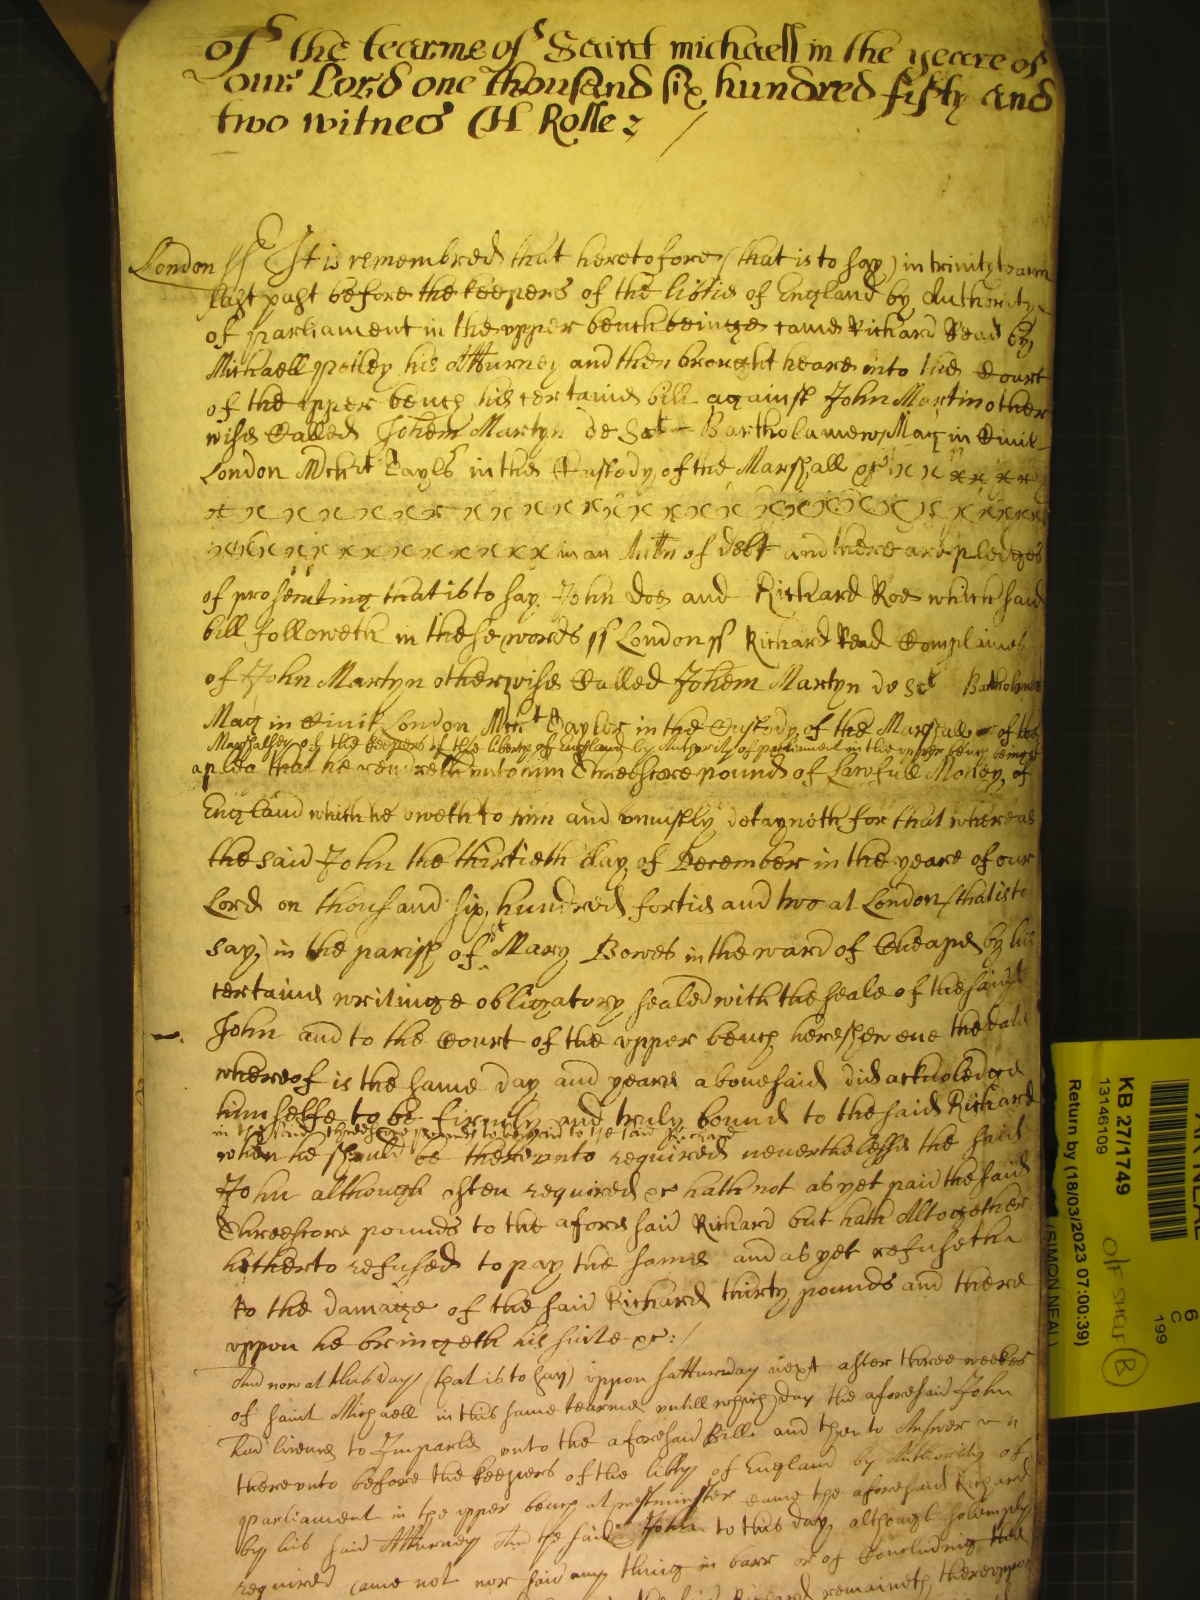 of the tearme of Saint michaell in the yeare of
our Lord one thousand six hundred fifty and
two witnes H Rolle
London ss It is remembred that heretofore (that is to say) in trinity tearm
last past before the keepers of the libtie of England by Authority
of parliament in the upper bench beinge came Richard Read by
Michaell his Atturney and then brought heare into the Court
of the upper bench his certaine bill against John Martin other
wise Called Johem Martyn de Sct Bartholamew Mag in Civit
London Mcht Tayls in the Custody of the Marshall of x x x x x x
x x x x x x x x x x x x x x x x x x x x x x x x
x x x x x x x x x x x x x in an Actn of debt and there are pledges
of prosecuting that is to say John Doe and Richard Roe which said
bill followeth in these words ss London ss Richard Read Complaines
of John Martyn otherwise Called Johem Martyn de Sct Bartholmew
Mag in Civit London Mcht Taylor in the Custody of the Marshall of the
Marshalsey of the keepers of the liberty of England by Authority of parliament in the upper bench beinge
a plea that he rendreth unto him Threescore pounds of Lawfull Money of
England which he oweth to him and uniustly detayneth for that whereas
the said John the thirtieth day of December in the yeare of our
Lord on thousand six hundred fortie and two at London (that is to
say) in the parish of St Mary Bowes in the ward of Cheape by his
certaine writinge obligatory sealed with the seale of the said
John and to the Court of the upper bench here shewene the date
whereof is the same day and yeare abovesaid did acknoledge
himselfe to be firmly and truly bound to the said Richard
in the said threescore pounds to be paid to the said Richard
when he should be thereunto required neverthelesse the said
John although often required &c hath not as yet paid the said
Threescore pounds to the aforesaid Richard but hath Altogether
hitherto refused to pay the same and as yet refuseth
to the damage of the said Richard thirty pounds and there
uppon he bringeth his suite &c:/
And now at this day (that is to say) uppon satturday next after three weekes
of saint Michaell in this same tearme untill which day the aforesaid John
had licence to Imparle unto the aforesaid Bill and then to Answer
thereunto before the keepers of the libty of England by Authority of
parliament in the upper bench at westminster came the aforesaid Richard
by his said Atturney And the said John to this day although solemnly
required came not nor said any thing in barr or of Concluding the
said Richard remaineth thereuppon
KB 27/1749
13146109
Return by (18/03/2023 07:00:39)
(SIMON NEAL)
6
C
199
B